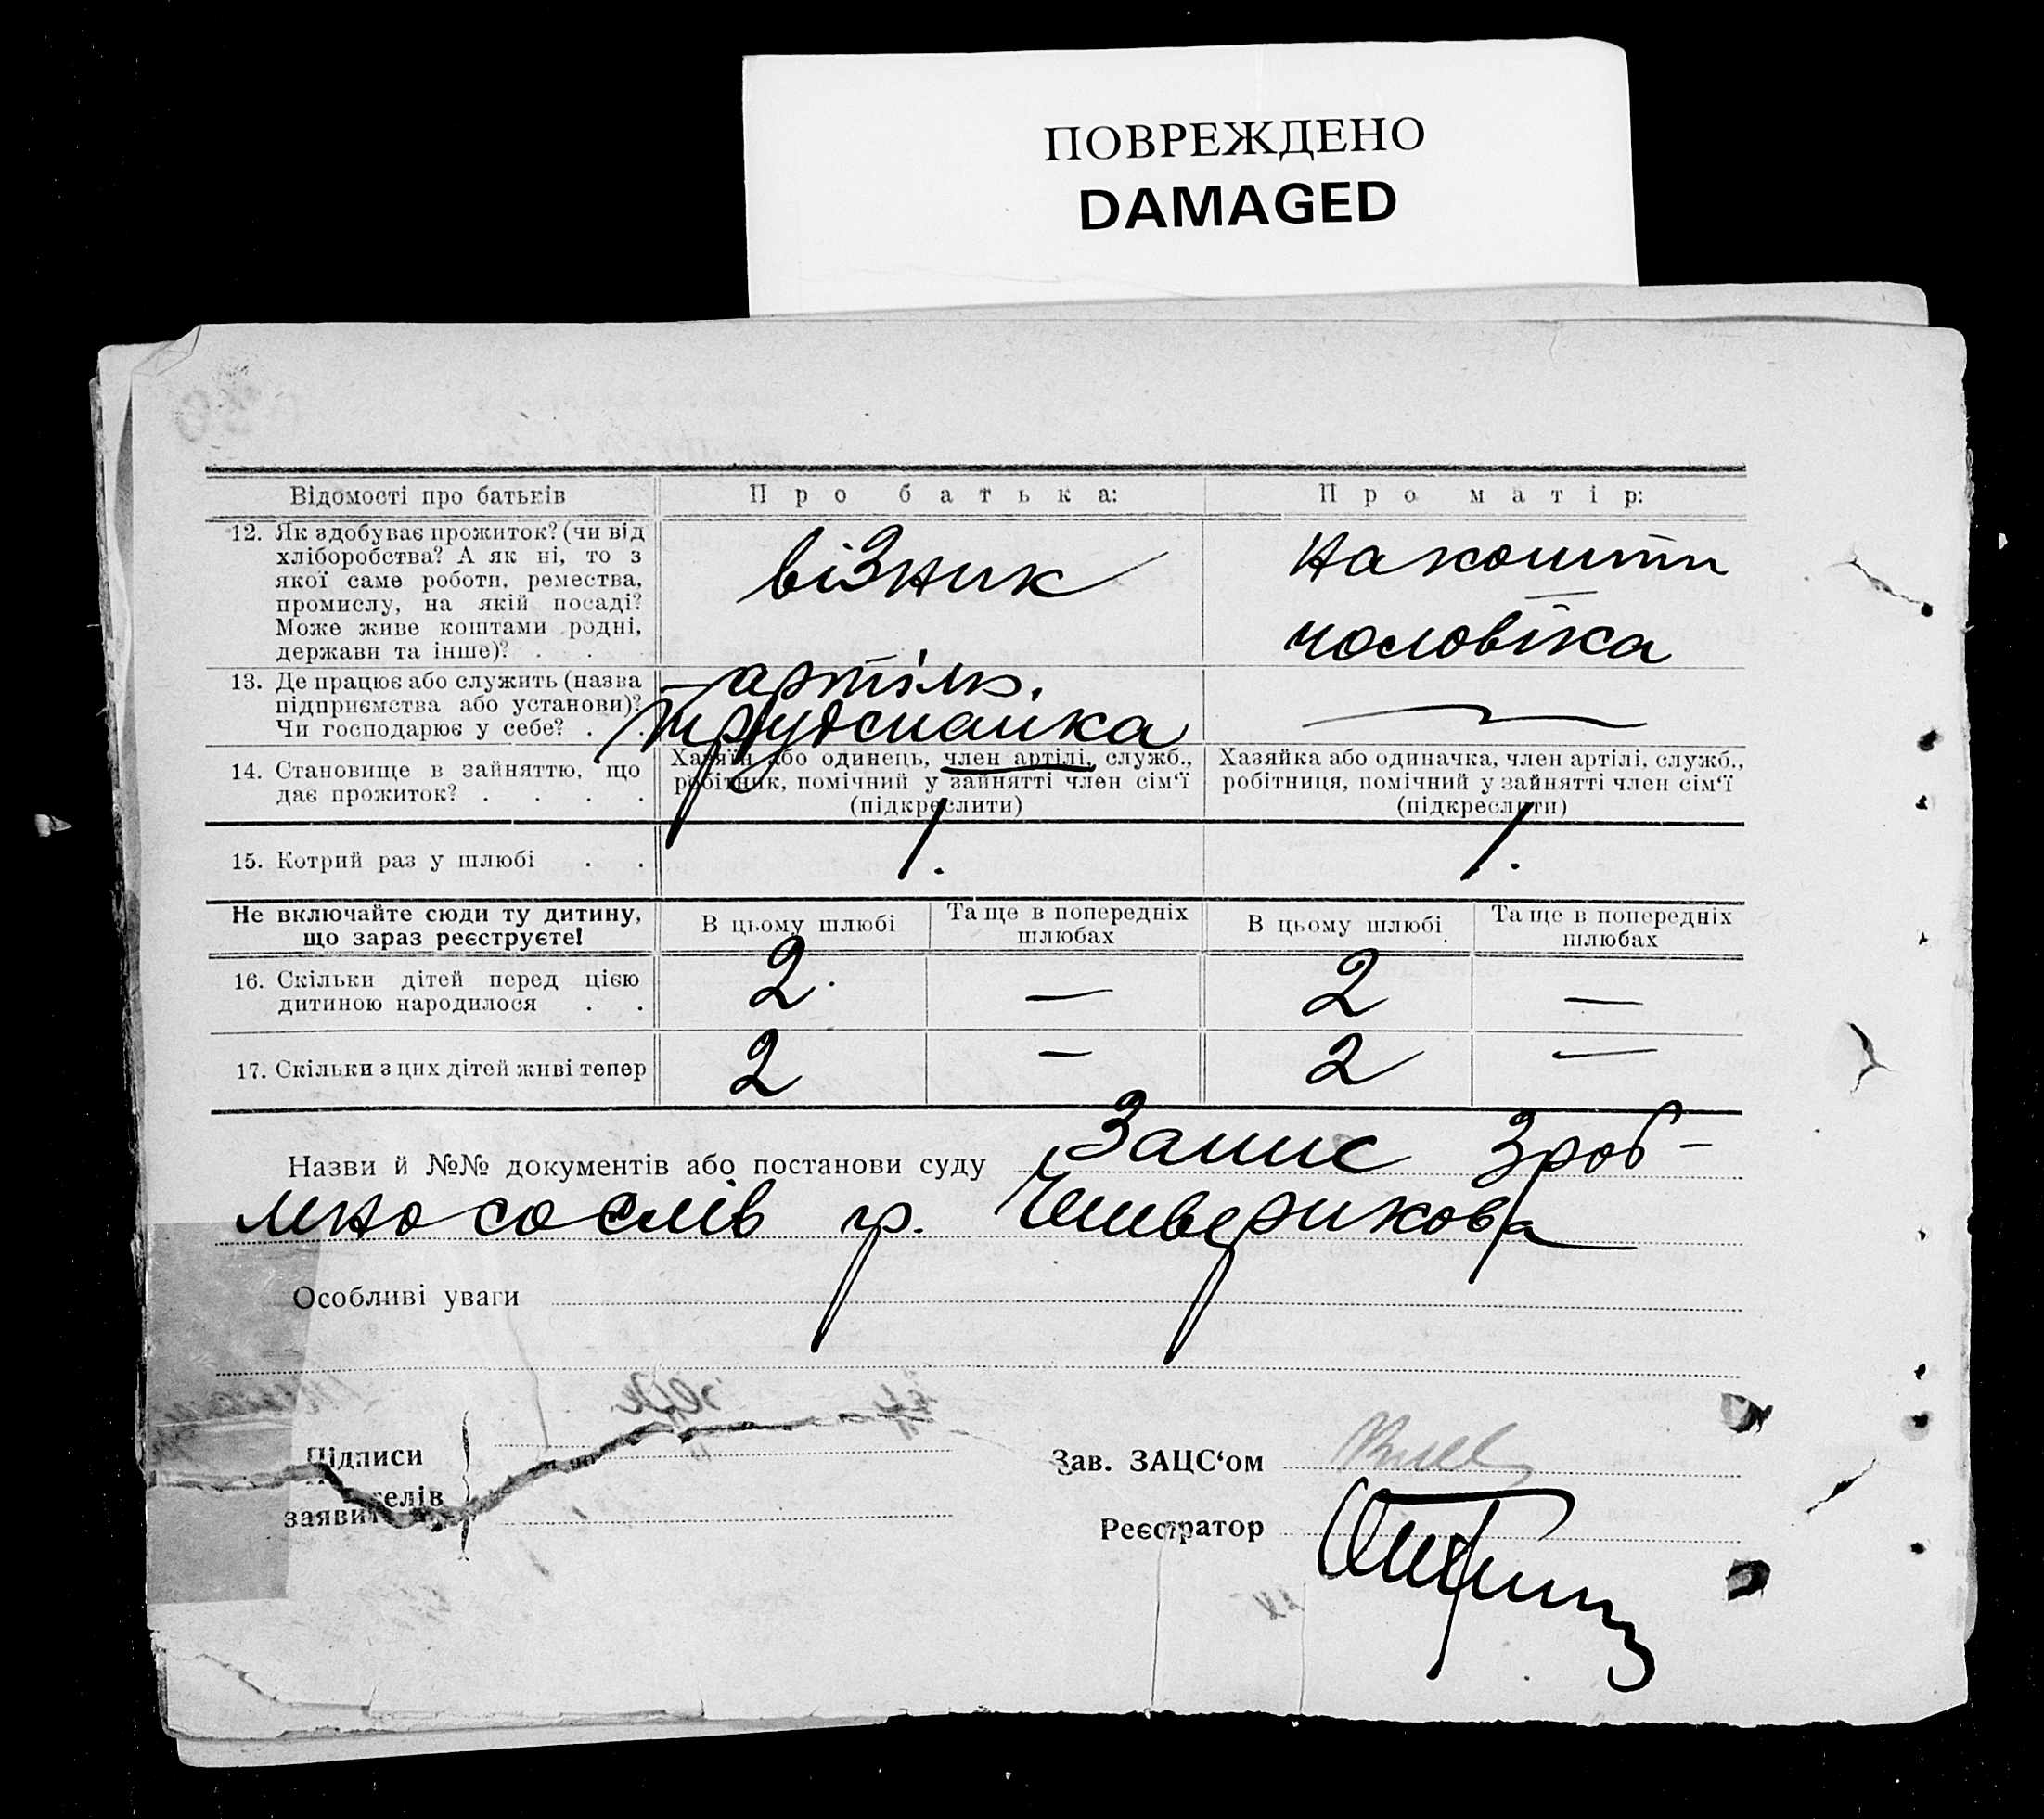 ПОВРЕЖДЕНО
DAMAGED
Відомості про батьків
Про батька:
Про матір:
12. Як здобуває прожиток? (чи від
хліборобства? А як ні, то з
якої саме роботи, ремества,
промислу, на якій посаді?
Може живе коштами родні,
держави та інше)? . . .
візник
на кошти
чоловіка
13. Де працює або служить (назва
підприємства або установи)?
Чи господарює у себе? . .
артіль.
14. Становище в зайняттю, що
дає прожиток? . . . .
Хазяїн або одинець, член артілі, служб.,
робітник, помічний у зайнятті член сім'ї
(підкреслити)
Хазяйка або одиначка, член артілі, служб.,
робітниця, помічний у зайнятті член сім'ї
(підкреслити)
15. Котрий раз у шлюбі . .
1.
1.
Не включайте сюди ту дитину,
що зараз реєструєте!
В цьому шлюбі
Та ще в попередніх
шлюбах
В цьому шлюбі
Та ще в попередніх
шлюбах
16. Скільки дітей перед цією
дитиною народилося . .
2.
—
2
—
17. Скільки з цих дітей живі тепер
2
—
2
—
Назви й №№ документів або постанови суду Запис зроб-
лено со слів гр.
Особливі уваги
Підписи
заявителів
Зав. ЗАЦС'ом
Реєстратор